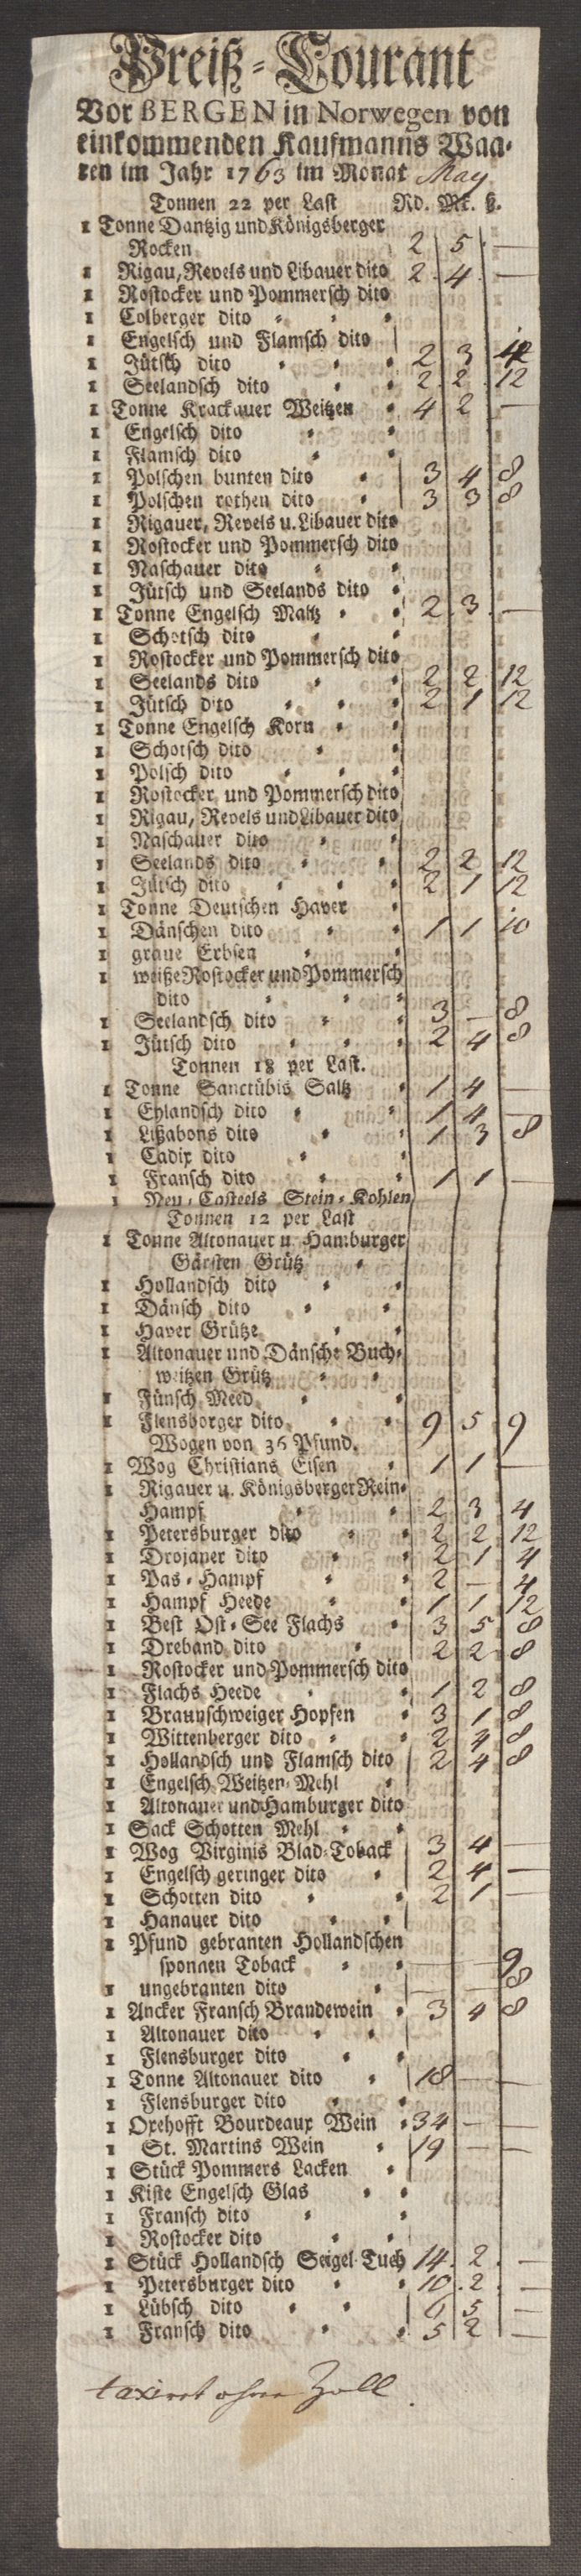 Preiß-Courant
Vor BERGEN in Norwegen von
einkommenden Kaufmanns Waa-
ren im Jahr 1763 im Monat May
Tonnen 22 per Last Rd. Mk. ß.
1 Tonne Dantzig und Königsberger
Rocken 2 5 —
1 Rigau, Revels und Libauer dito 2 4 —
1 Rostocker und Pommersch dito
1 Colberger dito
1 Engelsch und Flamsch dito
1 Jütsch dito 2 3
1 Seelandsch dito 2 2 12
1 Tonne Krackauer Weitzen 4 2 —
1 Engelsch dito
1 Flamsch dito
1 Polschen bunten dito 3 4 8
1 Polschen rothen dito 3 3 8
1 Rigauer, Revels u. Libauer dito
1 Rostocker und Pommersch dito
1 Naschauer dito
1 Jütsch und Seelands dito
1 Tonne Engelsch Maltz 2 3 —
1 Schotsch dito
1 Rostocker und Pommersch dito
1 Seelands dito 2 2 12
1 Jütsch dito 2 1 12
1 Tonne Engelsch Korn
1 Schotsch dito
1 Polsch dito
1 Rostocker und Pommersch dito
1 Rigau, Revels und Libauer dito
1 Naschauer dito
1 Seelands dito 2 2 12
1 Jütsch dito 2 1 12
1 Tonne Deutschen Haver
1 Dänschen dito 1 1 10
1 graue Erbsen
1 weiße Rostocker und Pommersch
dito
1 Seelandsch dito 3 — 8
1 Jütsch dito 2 4 8
Tonnen 18 per Last.
1 Tonne Sanctübis Saltz 1 4 —
1 Ehlandsch dito 1 4 —
1 Lißabons dito 1 3 8
1 Cadix dito
1 Fransch dito 1 1 —
1 Neu-Casteels Stein-Kohlen
Tonnen 12 per Last
1 Tonne Altonauer u. Hamburger
Gärsten Grütz
1 Hollandsch dito
1 Dänsch dito
1 Haver Grütze
1 Altonauer und Dänsche Buch-
weitzen Grütz
1 Fünsch Meed
1 Flensborger dito 9 5 9
Wogen von 36 Pfund.
1 Wog Christians Eisen 1 1 —
1 Rigauer u. Königsberger Rein-
Hampf 2 3 4
1 Petersburger dito 2 2 12
1 Drojaner dito 2 1 4
1 Pas-Hampf 2 — 4
1 Hampf Heede 1 1 12
1 Best Ost-See Flachs 3 5 8
1 Dreband dito 2 2 8
1 Rostocker und Pommersch dito
1 Flachs Heede 1 2 8
1 Braunschweiger Hopfen 3 1 8
1 Wittenberger dito 2 4 8
1 Hollandsch und Flamsch dito 2 4 8
1 Engelsch Weitzen-Mehl
1 Altonauer und Hamburger dito
1 Sack Schotten Mehl
1 Wog Virginis Blad-Toback 3 4 —
1 Engelsch geringer dito 2 4 —
1 Schotten dito 2 1 —
1 Hanauer dito
1 Pfund gebranten Hollandschen
sponnen Toback — — 9
1 ungebranten dito — — 8
1 Ancker Fransch Brandewein 3 4 8
1 Altonauer dito
1 Flensburger dito
1 Tonne Altonauer dito 18 — —
1 Flensburger dito
1 Oxehofft Bourdeaux Wein 34 — —
1 St. Martins Wein 19 — —
1 Stück Pommers Lacken
1 Kiste Engelsch Glas
1 Fransch dito
1 Rostocker dito
1 Stück Hollandsch Seigel Tuch 14 2 —
1 Petersburger dito 10 2 —
1 Lübsch dito 6 5 —
1 Fransch dito 5 2 —
taxiret ohne Zoll